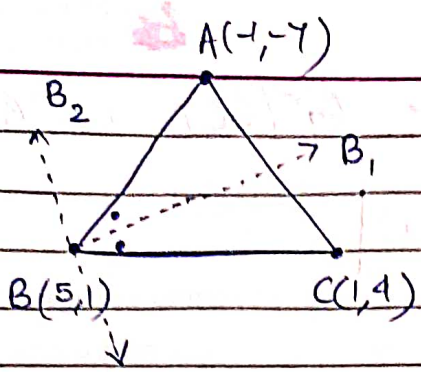 A(-1,-7)
B₂
B₁
B(5,1)
C(1,4)